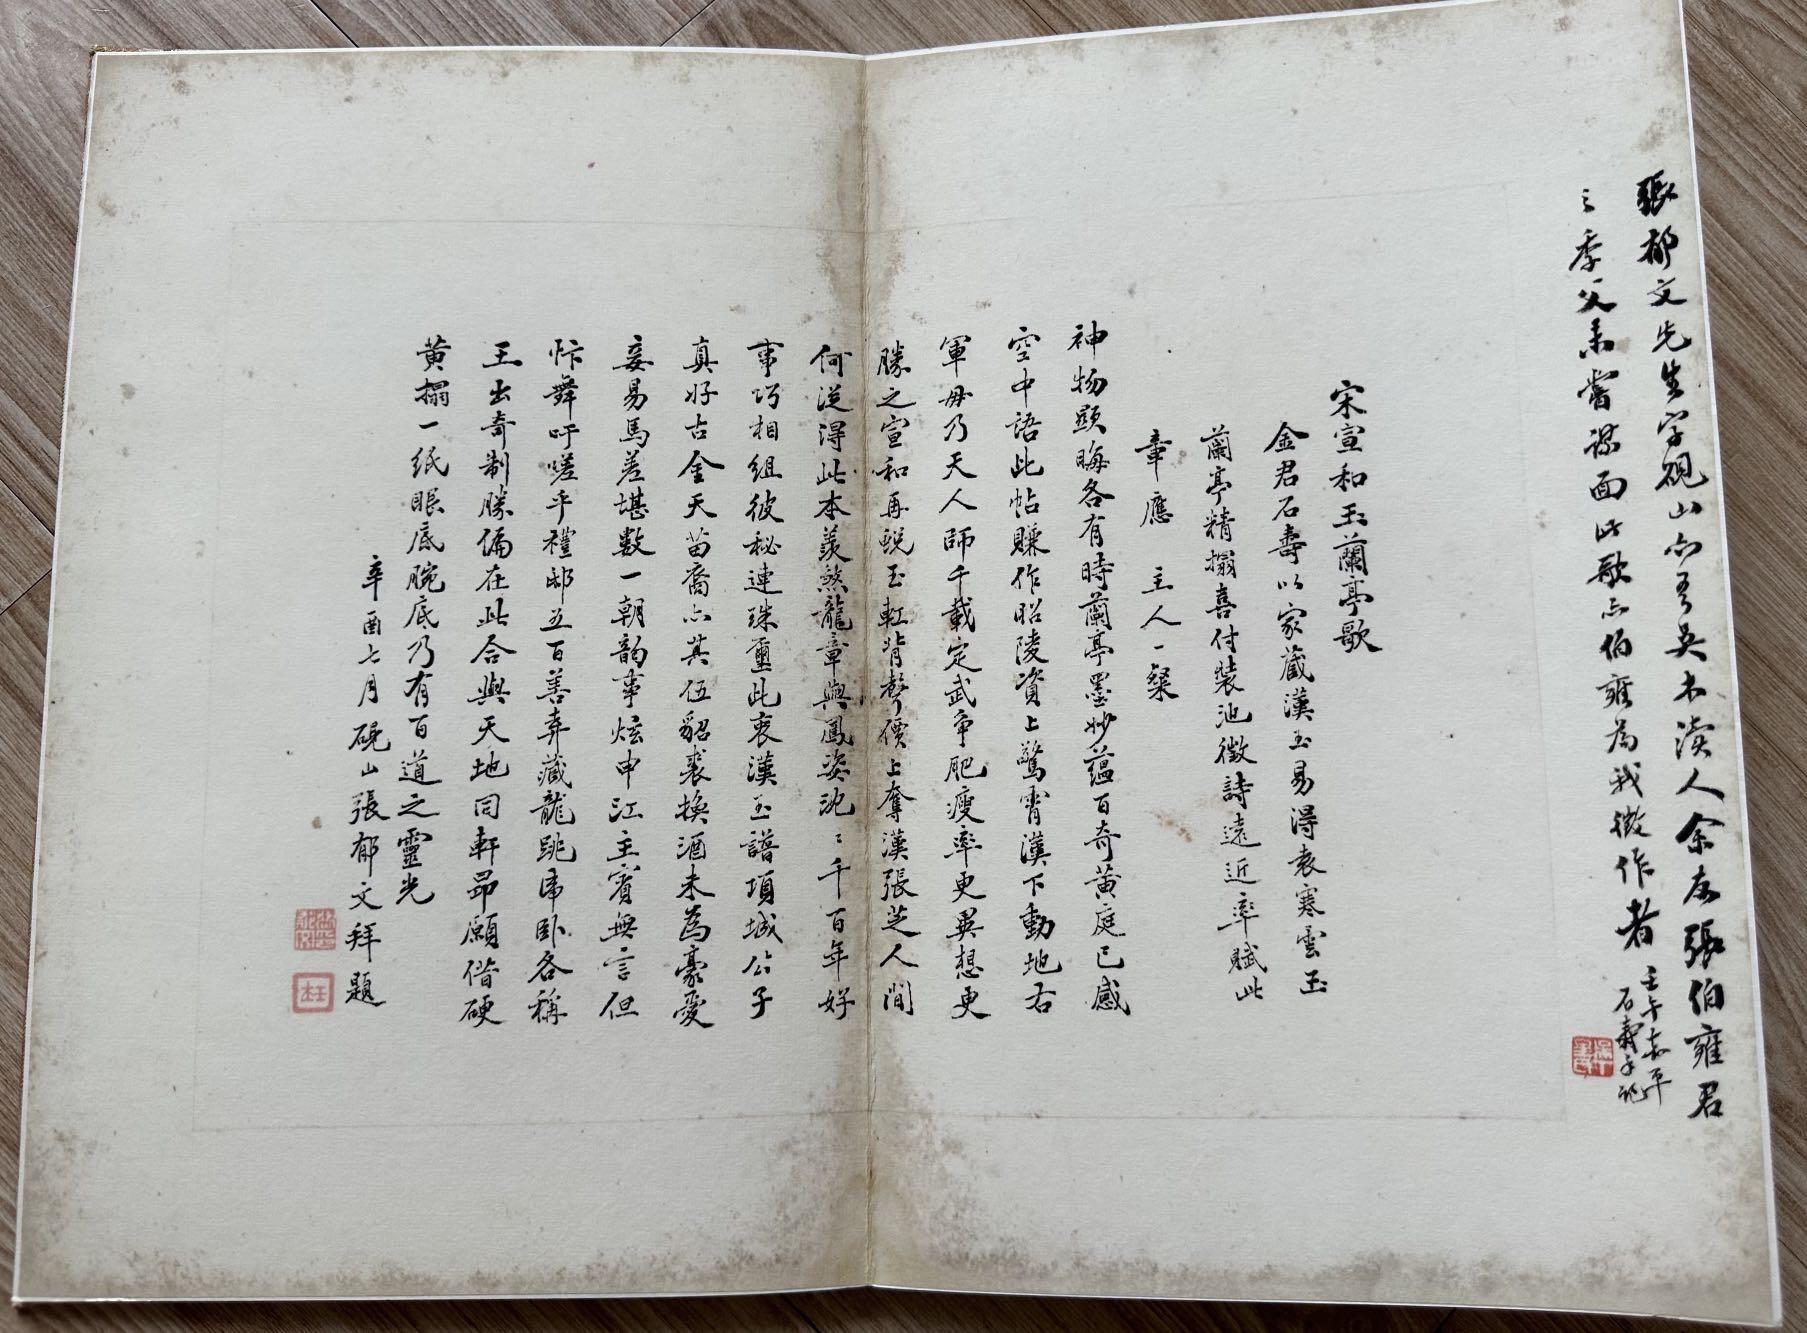 張郁文先生字硯山亦吾吳木瀆人余友張伯雍君
之季父未嘗謀面此歌亦伯雍為我徵作者
壬午嘉平
石壽手記
宋宣和玉蘭亭歌
金君石壽以家藏漢玉易得袁寒雲玉
蘭亭精搨喜付裝池徵詩遠近率賦此
章應　主人一粲
神物顯晦各有時蘭亭墨妙蘊百奇黃庭已感
空中語此帖賺作昭陵資上驚霄漢下動地右
軍毋乃天人師千載定武爭肥瘦率更異想更
勝之宣和再蛻玉虹背聲價上奪漢張芝人間
何從得此本羨煞龍章與鳳姿沈〻千百年好
事巧相組彼秘連珠璽此衷漢玉譜項城公子
真好古金天苗裔亦其伍貂裘換酒未為豪愛
妾易馬差堪數一朝韵事炫申江主賓無言但
忭舞吁嗟乎禮邸五百善弆藏龍跳虎臥各稱
王出奇制勝偏在此合與天地同軒昂願借硬
黃搨一紙眼底腕底乃有百道之靈光
辛酉七月硯山張郁文拜題